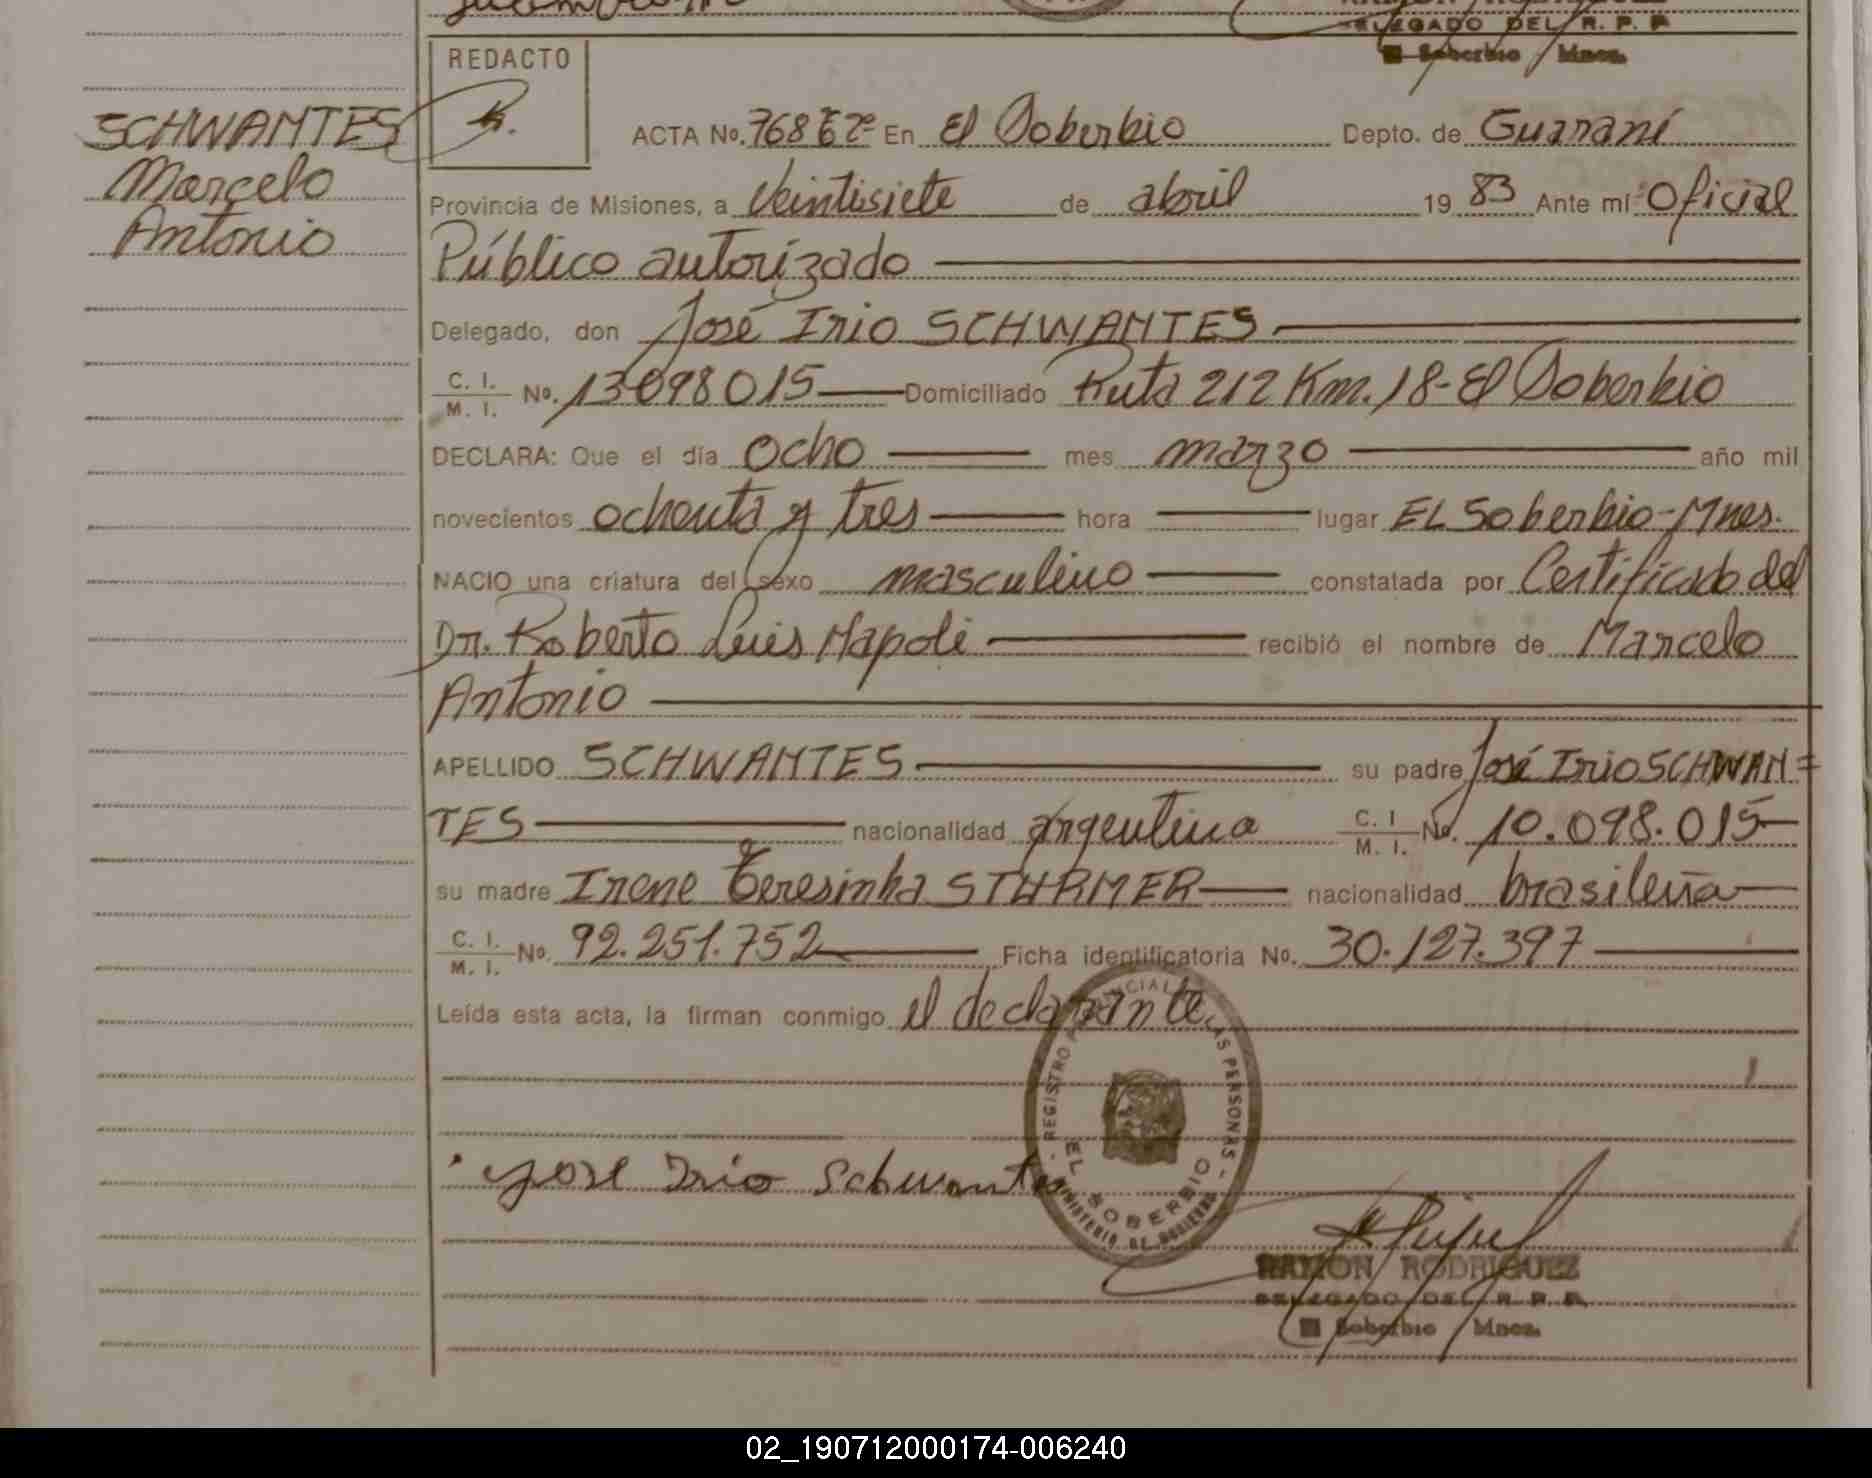 DELEGADO DEL R. P. P.
El Soberbio Mnes.
REDACTO
SCHWANTES
Marcelo
Antonio
ACTA No. 768 Tº 2º En El Soberbio Depto. de Guaraní
Provincia de Misiones, a Veintisiete de abril 19 83 Ante mí: Oficial
Público autorizado
Delegado, don José Irio SCHWANTES
C. I. M. I. No. 13098015 Domiciliado Ruta 212 Km. 18-El Soberbio
DECLARA: Que el día ocho mes marzo año mil
novecientos ochenta y tres hora lugar EL Soberbio-Mnes.
NACIO una criatura del sexo masculino constatada por Certificado del
Dr. Roberto Luis Napoli recibió el nombre de Marcelo
Antonio
APELLIDO SCHWANTES su padre José Irio SCHWAN=
TES nacionalidad argentina C. I M. I. No. 10.098.015
su madre Irene Teresinha STURMER nacionalidad brasileña
C. I. M. I. No. 92.251.752 Ficha identificatoria No. 30.127.397
Leída esta acta, la firman conmigo el declarante
REGISTRO PROVINCIAL DE LAS PERSONAS
EL SOBERBIO
MINISTERIO DE GOBIERNO
Jose Irio Schwantes
RAMON RODRIGUEZ
DELEGADO DEL R. P. P.
El Soberbio Mnes.
02_190712000174-006240